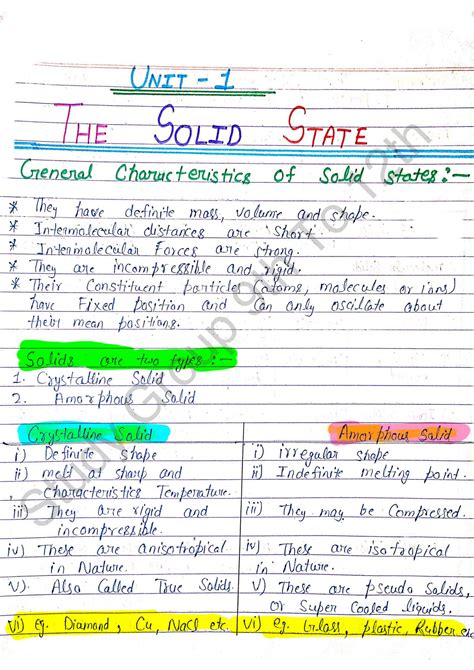 UNIT - 1
THE SOLID STATE
General Characteristics of Solid states:-
* They have definite mass, volume and shape.
* Intermolecular distances are short.
* Intermolecular Forces are strong.
* They are incompressible and rigid.
* Their Constituent particles (atoms, molecules or ions)
have Fixed position and can only oscillate about
their mean positions.
Solids are two types:-
1. Crystalline Solid
2. Amorphous Solid
Crystalline Solid
i) Definite shape
ii) melt at sharp and
Characteristics Temperature.
iii) They are rigid and
incompressible.
iv) These are anisotropical
in Nature.
v). Also Called True Solids.
vi) eg. Diamond, Cu, NaCl etc.
Amorphous Solid
i) irregular shape
ii) Indefinite melting point.
iii) They may be Compressed.
iv) These are isotropical
in Nature.
v). These are pseudo Solids,
or Super Cooled liquids.
vi) eg. Glass, plastic, Rubber etc
Study Group 9th To 12th